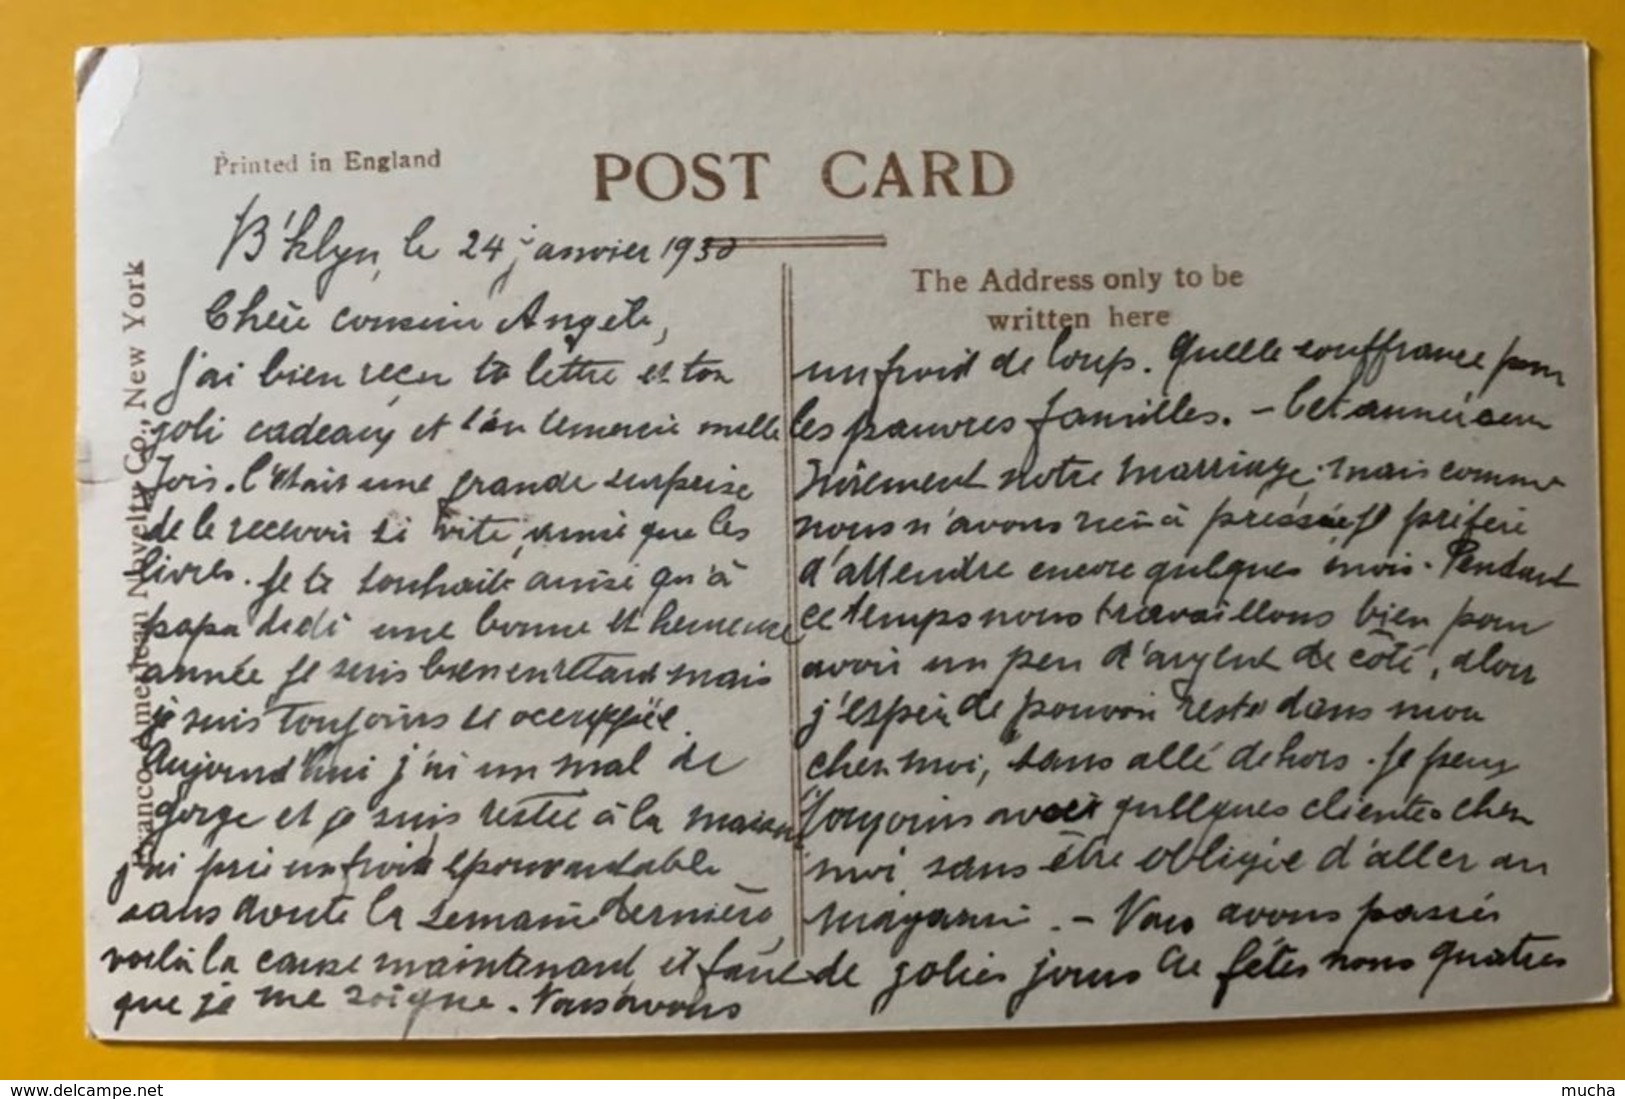 Printed in England
POST CARD
Franco-American Novelty Co., New York
The Address only to be
written here
B'klyn, le 24 janvier 1930
Chère cousine Angèle,
j'ai bien reçu ta lettre et ton
joli cadeaux et t'en remercie mille
fois. C'était une grande surprise
de le recevoir si vite, ainsi que les
livres. Je te souhaite ainsi qu'à
papa dedi une bonne et heureuse
année je suis bien en retard mais
je suis toujours si occuppée.
Aujourd'hui j'ai un mal de
gorge et je suis restée à la maison
j'ai pris un froid épouvandable
sans doute la semaine dernière,
voilà la cause maintenant et faut
que je me soigne. Nous avons
un froid de loup. Quelle souffrance pour
les pauvres familles. - Cet année
notre marriage. mais comme
nous n'avons rien à pressée je préfère
d'attendre encore quelques mois. Pendant
ce temps nous travaillons bien pour
avoir un peu d'argent de côté, alors
j'espère de pouvoir reste dans mon
chez moi, sans allé dehors. Je peux
toujours avoir quellques clientes chez
moi, sans être obligée d'aller au
magasin. - Nous avons passés
de jolies jours de fêtes nous quatres
www.delcampe.net
mucha